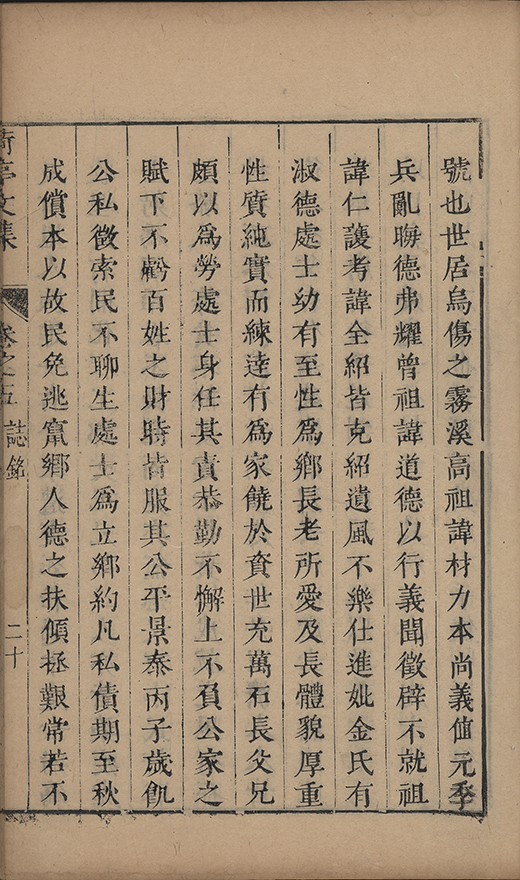 號也世居烏傷之霧溪高祖諱材力本尚義值元季
兵亂晦德弗耀曾祖諱道德以行義聞徵辟不就祖
諱仁護考諱全紹皆克紹遺風不樂仕進妣金氏有
淑德處士幼有至性爲鄉長老所愛及長體貌厚重
性質純實而練達有爲家饒於資世充萬石長父兄
頗以爲勞處士身任其責恭勤不懈上不負公家之
賦下不虧百姓之財時皆服其公平景泰丙子歲飢
公私徵索民不聊生處士爲立鄉約凡私債期至秋
成償本以故民免逃竄鄉人德之扶傾拯艱常若不
亭文集
卷之五
誌銘
二十